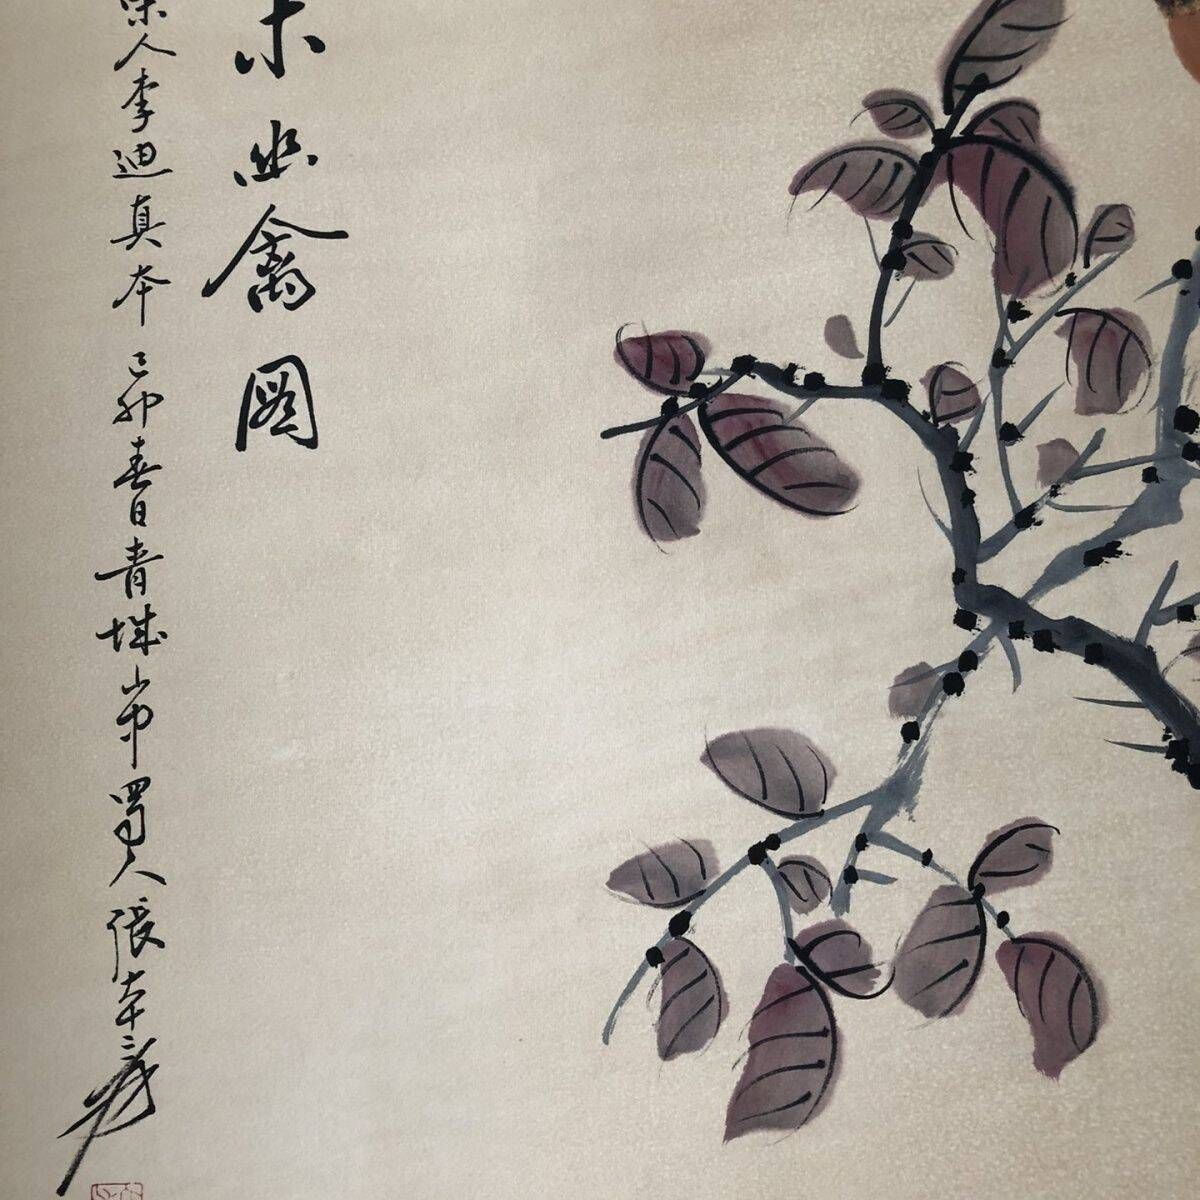 木幽禽圖
宋人李迪真本 己卯春日青城山中蜀人張大千爰